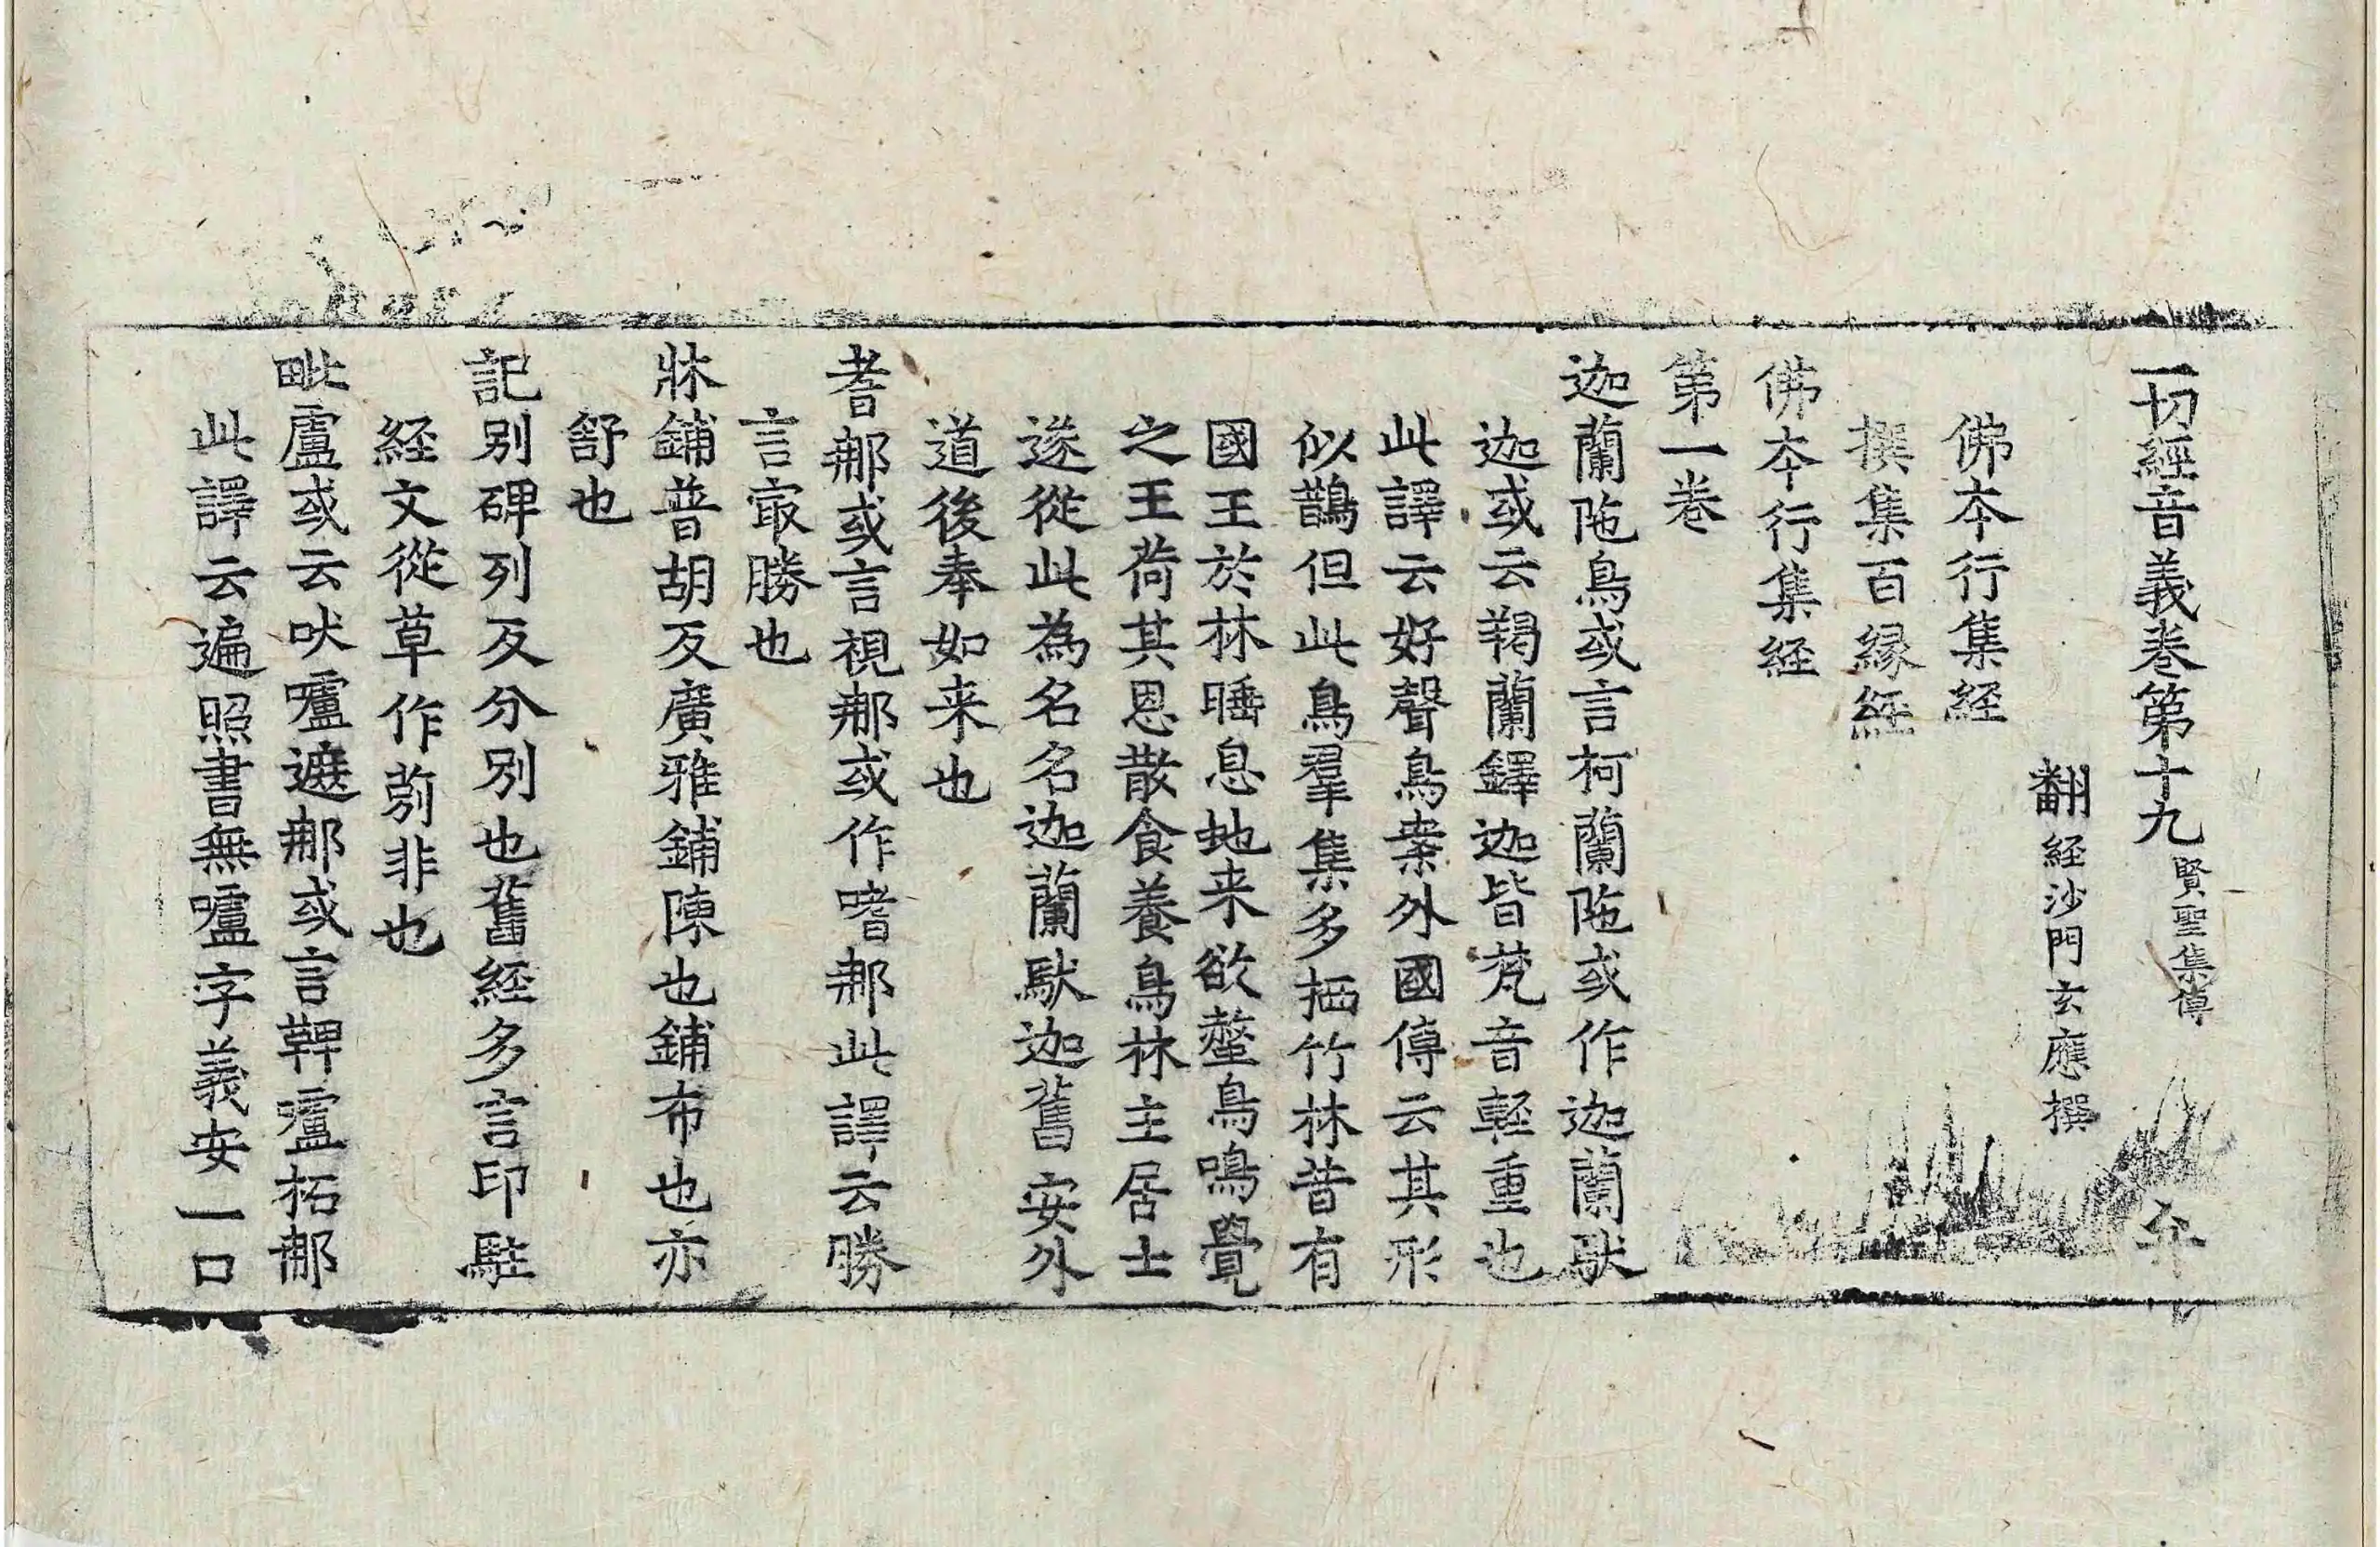 一切經音義卷第十九 賢聖集傳
翻經沙門玄應撰
佛本行集経
撰集百縁経
佛本行集経
第一卷
迦蘭陁鳥或言柯蘭陁或作迦蘭馱
迦或云羯蘭鐸迦皆梵音軽重也
此譯云好聲鳥案外國傳云其形
似鵲但此鳥羣集多栖竹林昔有
國王於林睡息虵来欲螫鳥鳴覺
之王荷其恩散食養鳥林主居士
遂從此為名名迦蘭馱迦舊安外
道後奉如来也
耆那或言視那或作嗜那此譯云勝
言㝡勝也
牀鋪普胡反廣雅鋪陳也鋪布也亦
舒也
記别碑列反分别也舊経多言印䭾
経文從草作莂非也
毗盧或云吠嚧遮那或言鞞嚧柘那
此譯云遍照書無嚧字義安一口